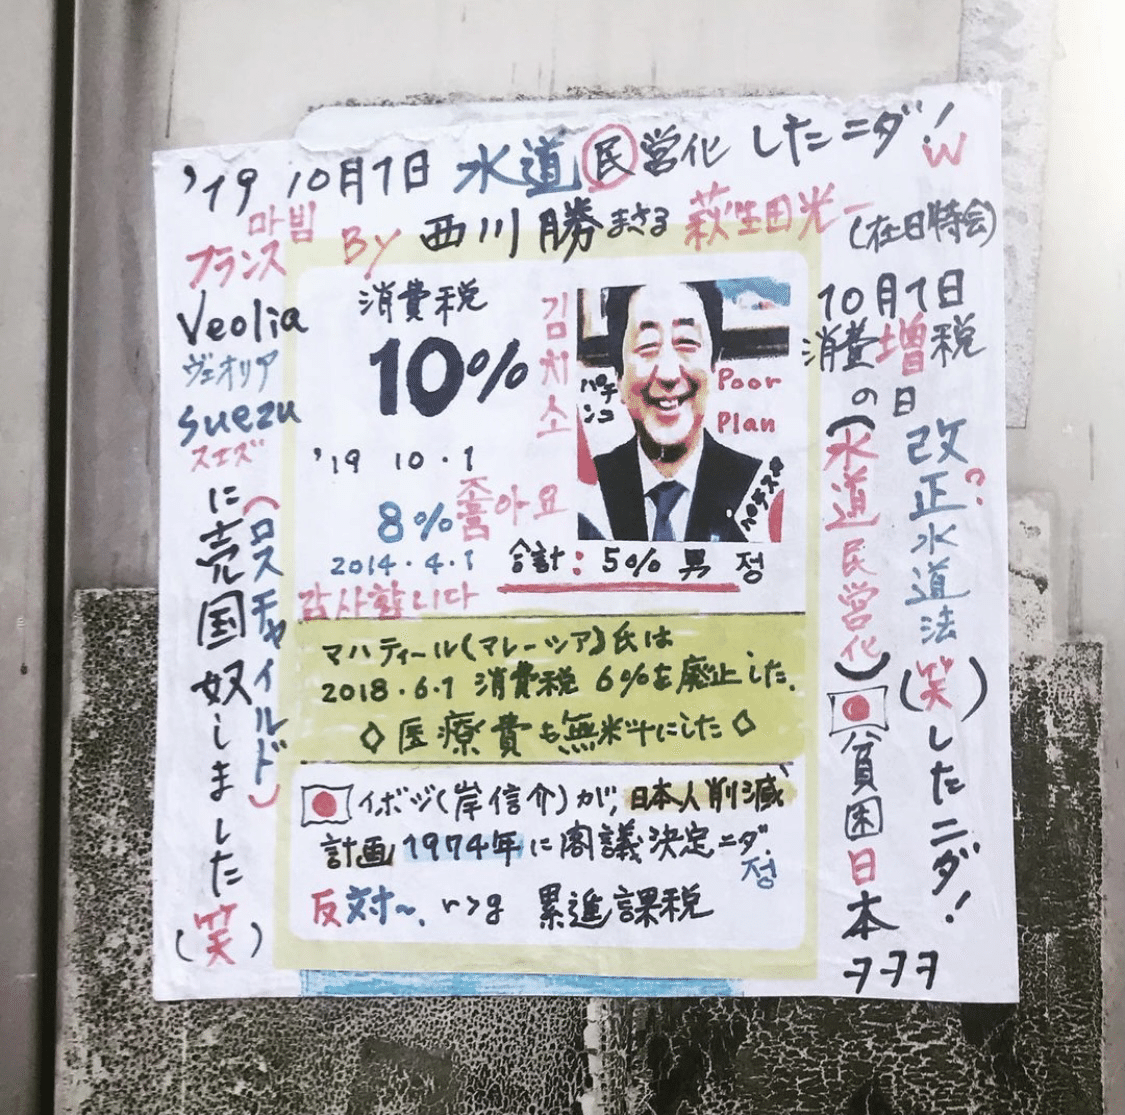 '19 10月1日 水道民営化したニダ! W
마빔
フランス
By 西川勝まさる 萩生田光一 (在日特会)
Veolia
ヴェオリア
suezu
スエズ
に売国奴しました
(笑)
(ロスチャイルド)
消費税
10%
'19 10.1
8%
2014.4.1
김치소
좋아요
감사합니다
パチンコ
Poor
Plan
合計: 50% 男 정
マハティール(マレーシア)氏は
2018.6.1 消費税 6%を廃止した。
◇医療費も無料にした◇
イボジ(岸信介)が、日本人削減
計画1974年に閣議決定ニダ
정
反対〜、r>g 累進課税
10月1日
消費増税
の日
(水道民営化)
貧困日本
ヲヲヲ
改正水道法?
(笑)したニダ!